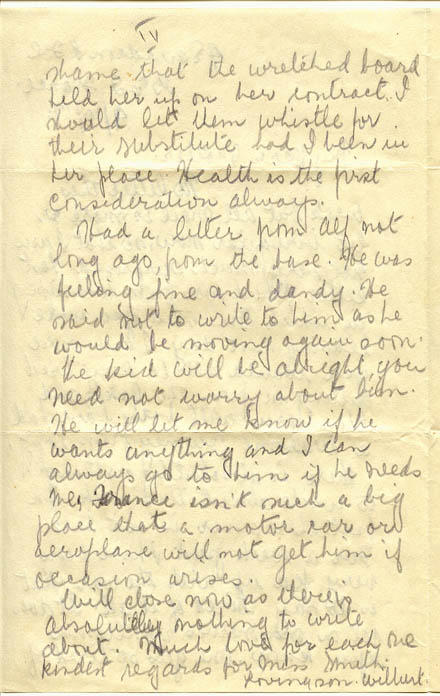 IV
shame that the wretched board
held her up on her contract. I
would let them whistle for
their substitute had I been in
her place. Health is the first
consideration always.
Had a letter from Alf not
long ago, from the base. He was
feeling fine and dandy. He
said not to write to him as he
would be moving again soon.
The kid will be alright, you
need not worry about him.
He will let me know if he
wants anything and I can
always go to him if he needs
me, France isn't such a big
place that a motor car or
aeroplane will not get him if
occasion arises.
Will close now as there is
absolutely nothing to write
about. Much love for each one
kindest regards for Miss Smith.
Loving son. Wilbert.